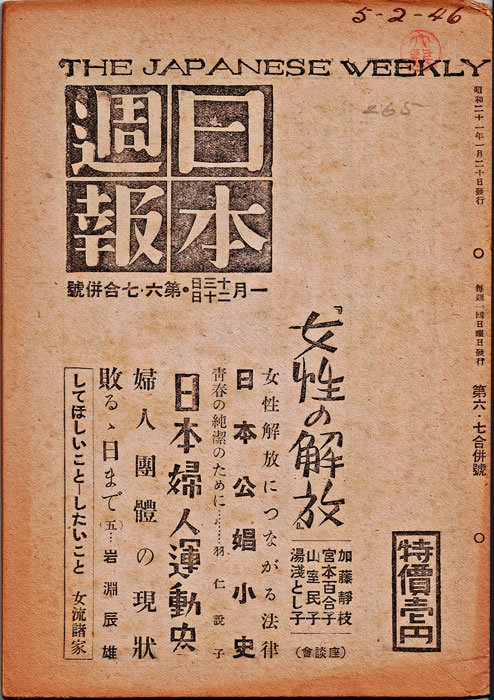 5-2-46
THE JAPANESE WEEKLY
265
日本週報
一月十三日二十日・第六・七合併號
昭和二十一年一月二十日發行
每週一回日曜日發行
第六・七合併號
『女性の解放』
加藤靜枝
宮本百合子
山室民子
湯淺とし子
(座談會)
女性解放につながる法律
日本公娼小史
青春の純潔のために……羽仁説子
日本婦人運動史
婦人團體の現狀
敗るゝ日まで(五)…岩淵辰雄
してほしいことーしたいこと 女流諸家
特價壱円